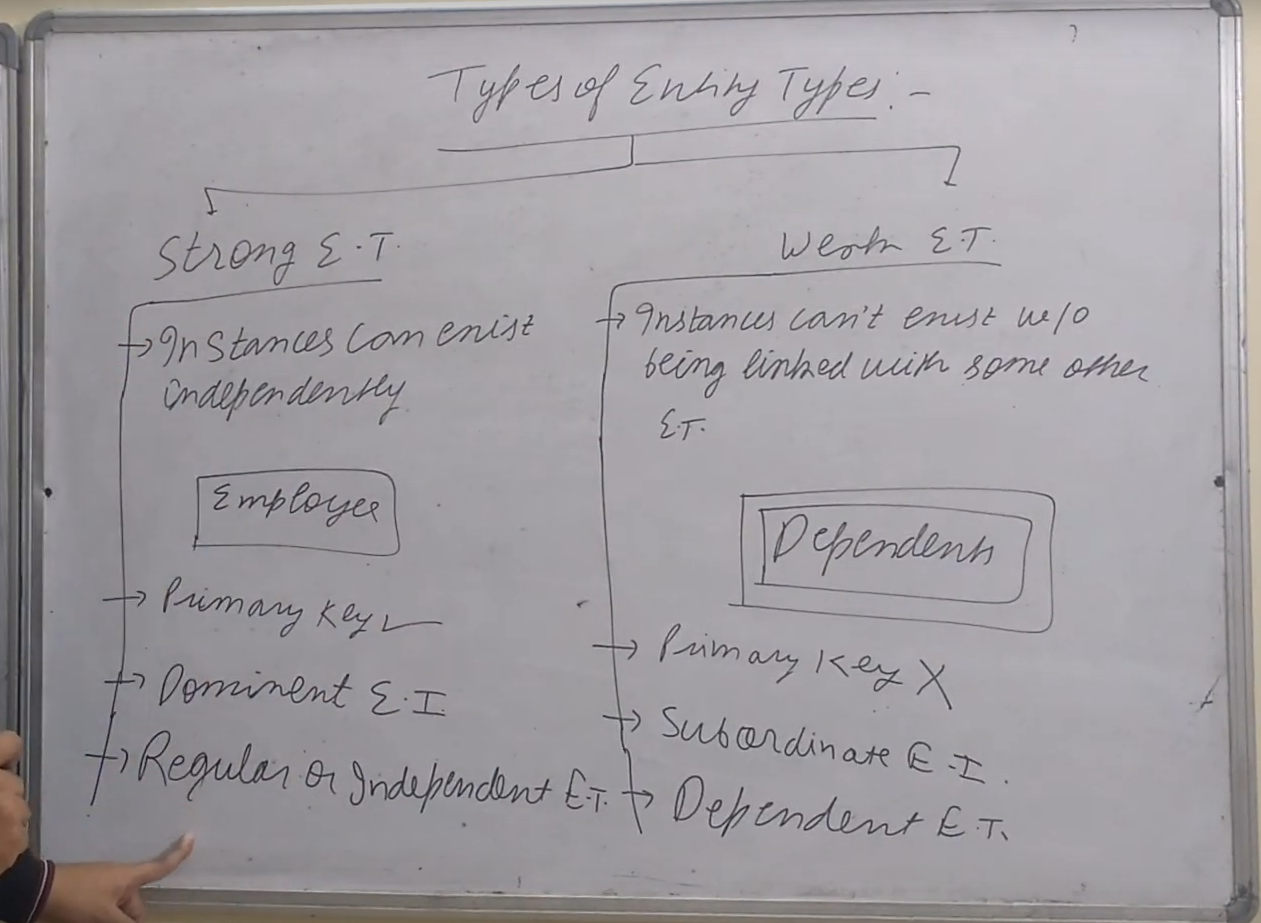 Types of Entity Types :-
Strong E.T.
→ Instances can exist
independently
Employee
→ Primary Key ✓
→ Dominent E.I
→ Regular or Independent E.T.
Weak E.T.
→ Instances can't exist w/o
being linked with some other
E.T.
Dependents
→ Primary Key X
→ Subordinate E.I.
→ Dependent E.T.